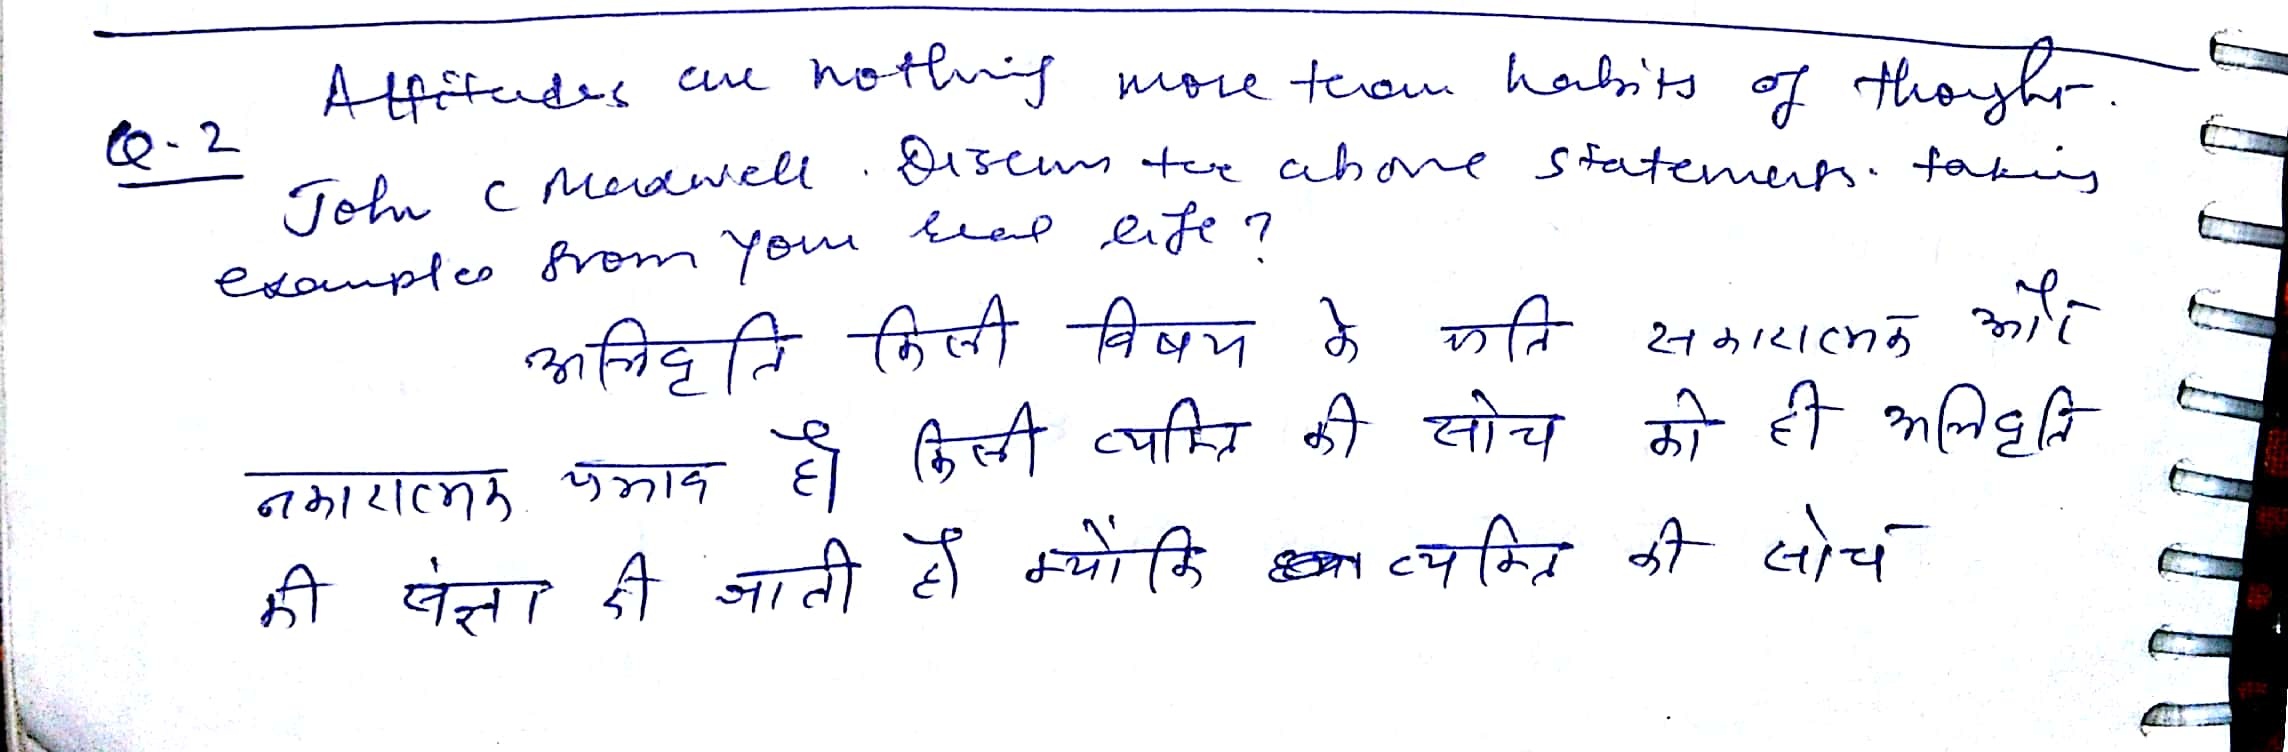 Attitudes are nothing more than habits of thought.
Q-2
John C Maxwell. Discuss the above statements. taking
examples from your real life?
अभिवृति किसी विषय के प्रति सकारात्मक और
नकारात्मक प्रभाव है। किसी व्यक्ति की सोच को ही अभिवृति
की संज्ञा दी जाती है। क्योंकि व्यक्ति की सोच